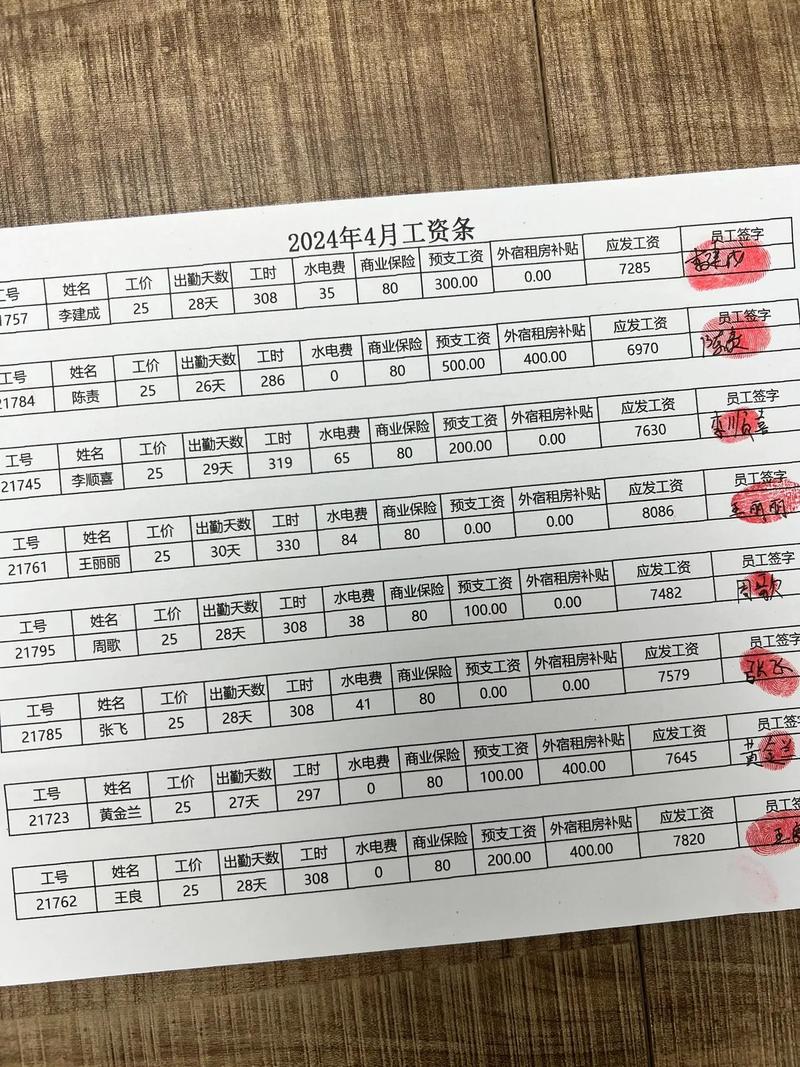 2024年4月工资条
工号 姓名 工价 出勤天数 工时 水电费 商业保险 预支工资 外宿租房补贴 应发工资 员工签字
1757 李建成 25 28天 308 35 80 300.00 0.00 7285 李建成
工号 姓名 工价 出勤天数 工时 水电费 商业保险 预支工资 外宿租房补贴 应发工资 员工签字
21784 陈责 25 26天 286 0 80 500.00 400.00 6970
工号 姓名 工价 出勤天数 工时 水电费 商业保险 预支工资 外宿租房补贴 应发工资 员工签字
21745 李顺喜 25 29天 319 65 80 200.00 0.00 7630 李顺喜
工号 姓名 工价 出勤天数 工时 水电费 商业保险 预支工资 外宿租房补贴 应发工资 员工签字
21761 王丽丽 25 30天 330 84 80 0.00 0.00 8086
工号 姓名 工价 出勤天数 工时 水电费 商业保险 预支工资 外宿租房补贴 应发工资 员工签字
21795 周歌 25 28天 308 38 80 100.00 0.00 7482 周歌
工号 姓名 工价 出勤天数 工时 水电费 商业保险 预支工资 外宿租房补贴 应发工资 员工签字
21785 张飞 25 28天 308 41 80 0.00 0.00 7579 张飞
工号 姓名 工价 出勤天数 工时 水电费 商业保险 预支工资 外宿租房补贴 应发工资 员工签
21723 黄金兰 25 27天 297 0 80 100.00 400.00 7645 黄金兰
工号 姓名 工价 出勤天数 工时 水电费 商业保险 预支工资 外宿租房补贴 应发工资 员工
21762 王良 25 28天 308 0 80 200.00 400.00 7820 王